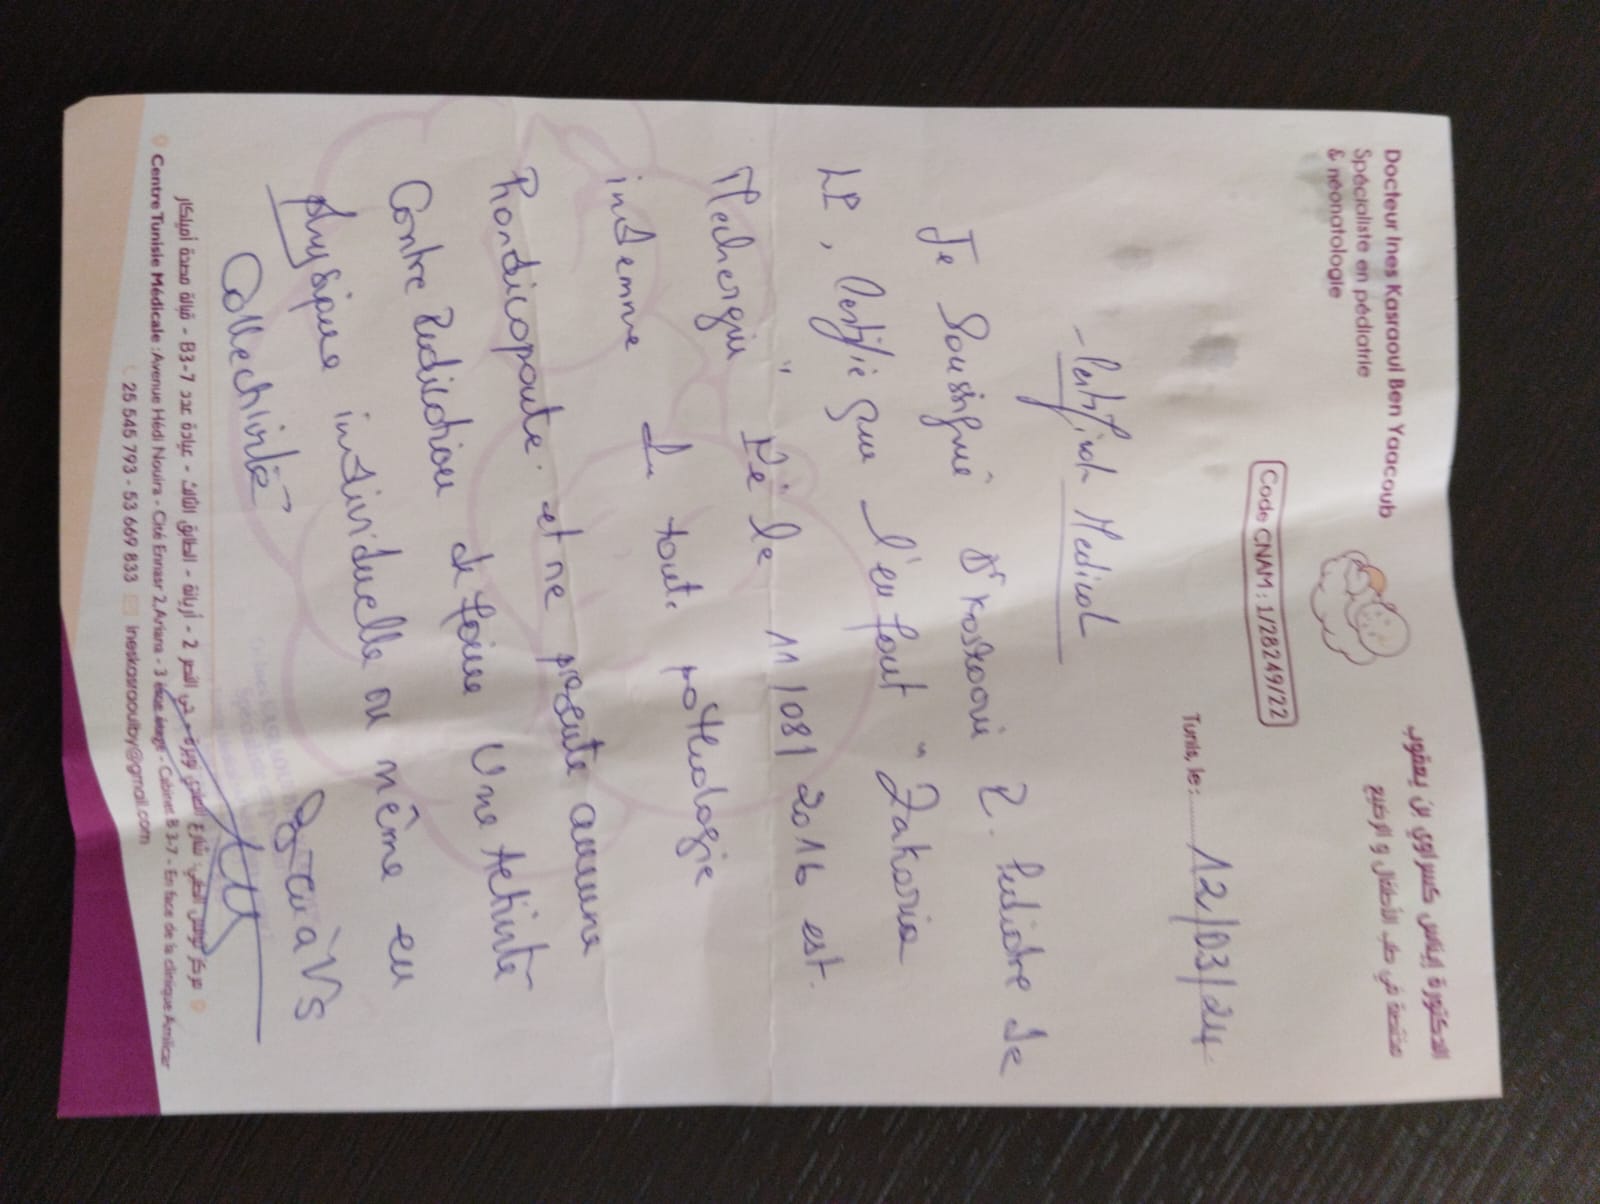 Docteur Ines Kasraoui Ben Yaacoub
Spécialiste en pédiatrie
& néonatologie
الدكتورة إيناس كسراوي بن يعقوب
مختصة في طب الأطفال و الرضيع
Code CNAM : 1/28249/22
Tunis, le : 12/03/24
Certificat Médical
Je Soussigné Dr Kasraoui I. Pédiatre de
LP, Certifie que l'enfant "Zakaria
Mechergui" Né le 11/08/2016 est
indemne de toute pathologie
handicapante et ne présente aucune
Contre Indication de faire Une Activité
physique individuelle ou même en
Collectivité
مركز تونس الطبي: شارع الهادي نويرة - حي النصر 2 - أريانة - الطابق الثالث - عيادة عدد B3-7 - قبالة مصحة أميلكار
Centre Tunisie Médicale : Avenue Hédi Nouira - Cité Ennasr 2, Ariana - 3 ème étage - Cabinet B 3-7 - En face de la clinique Amilcar
25 545 793 - 53 669 833 ineskasraouiby@gmail.com